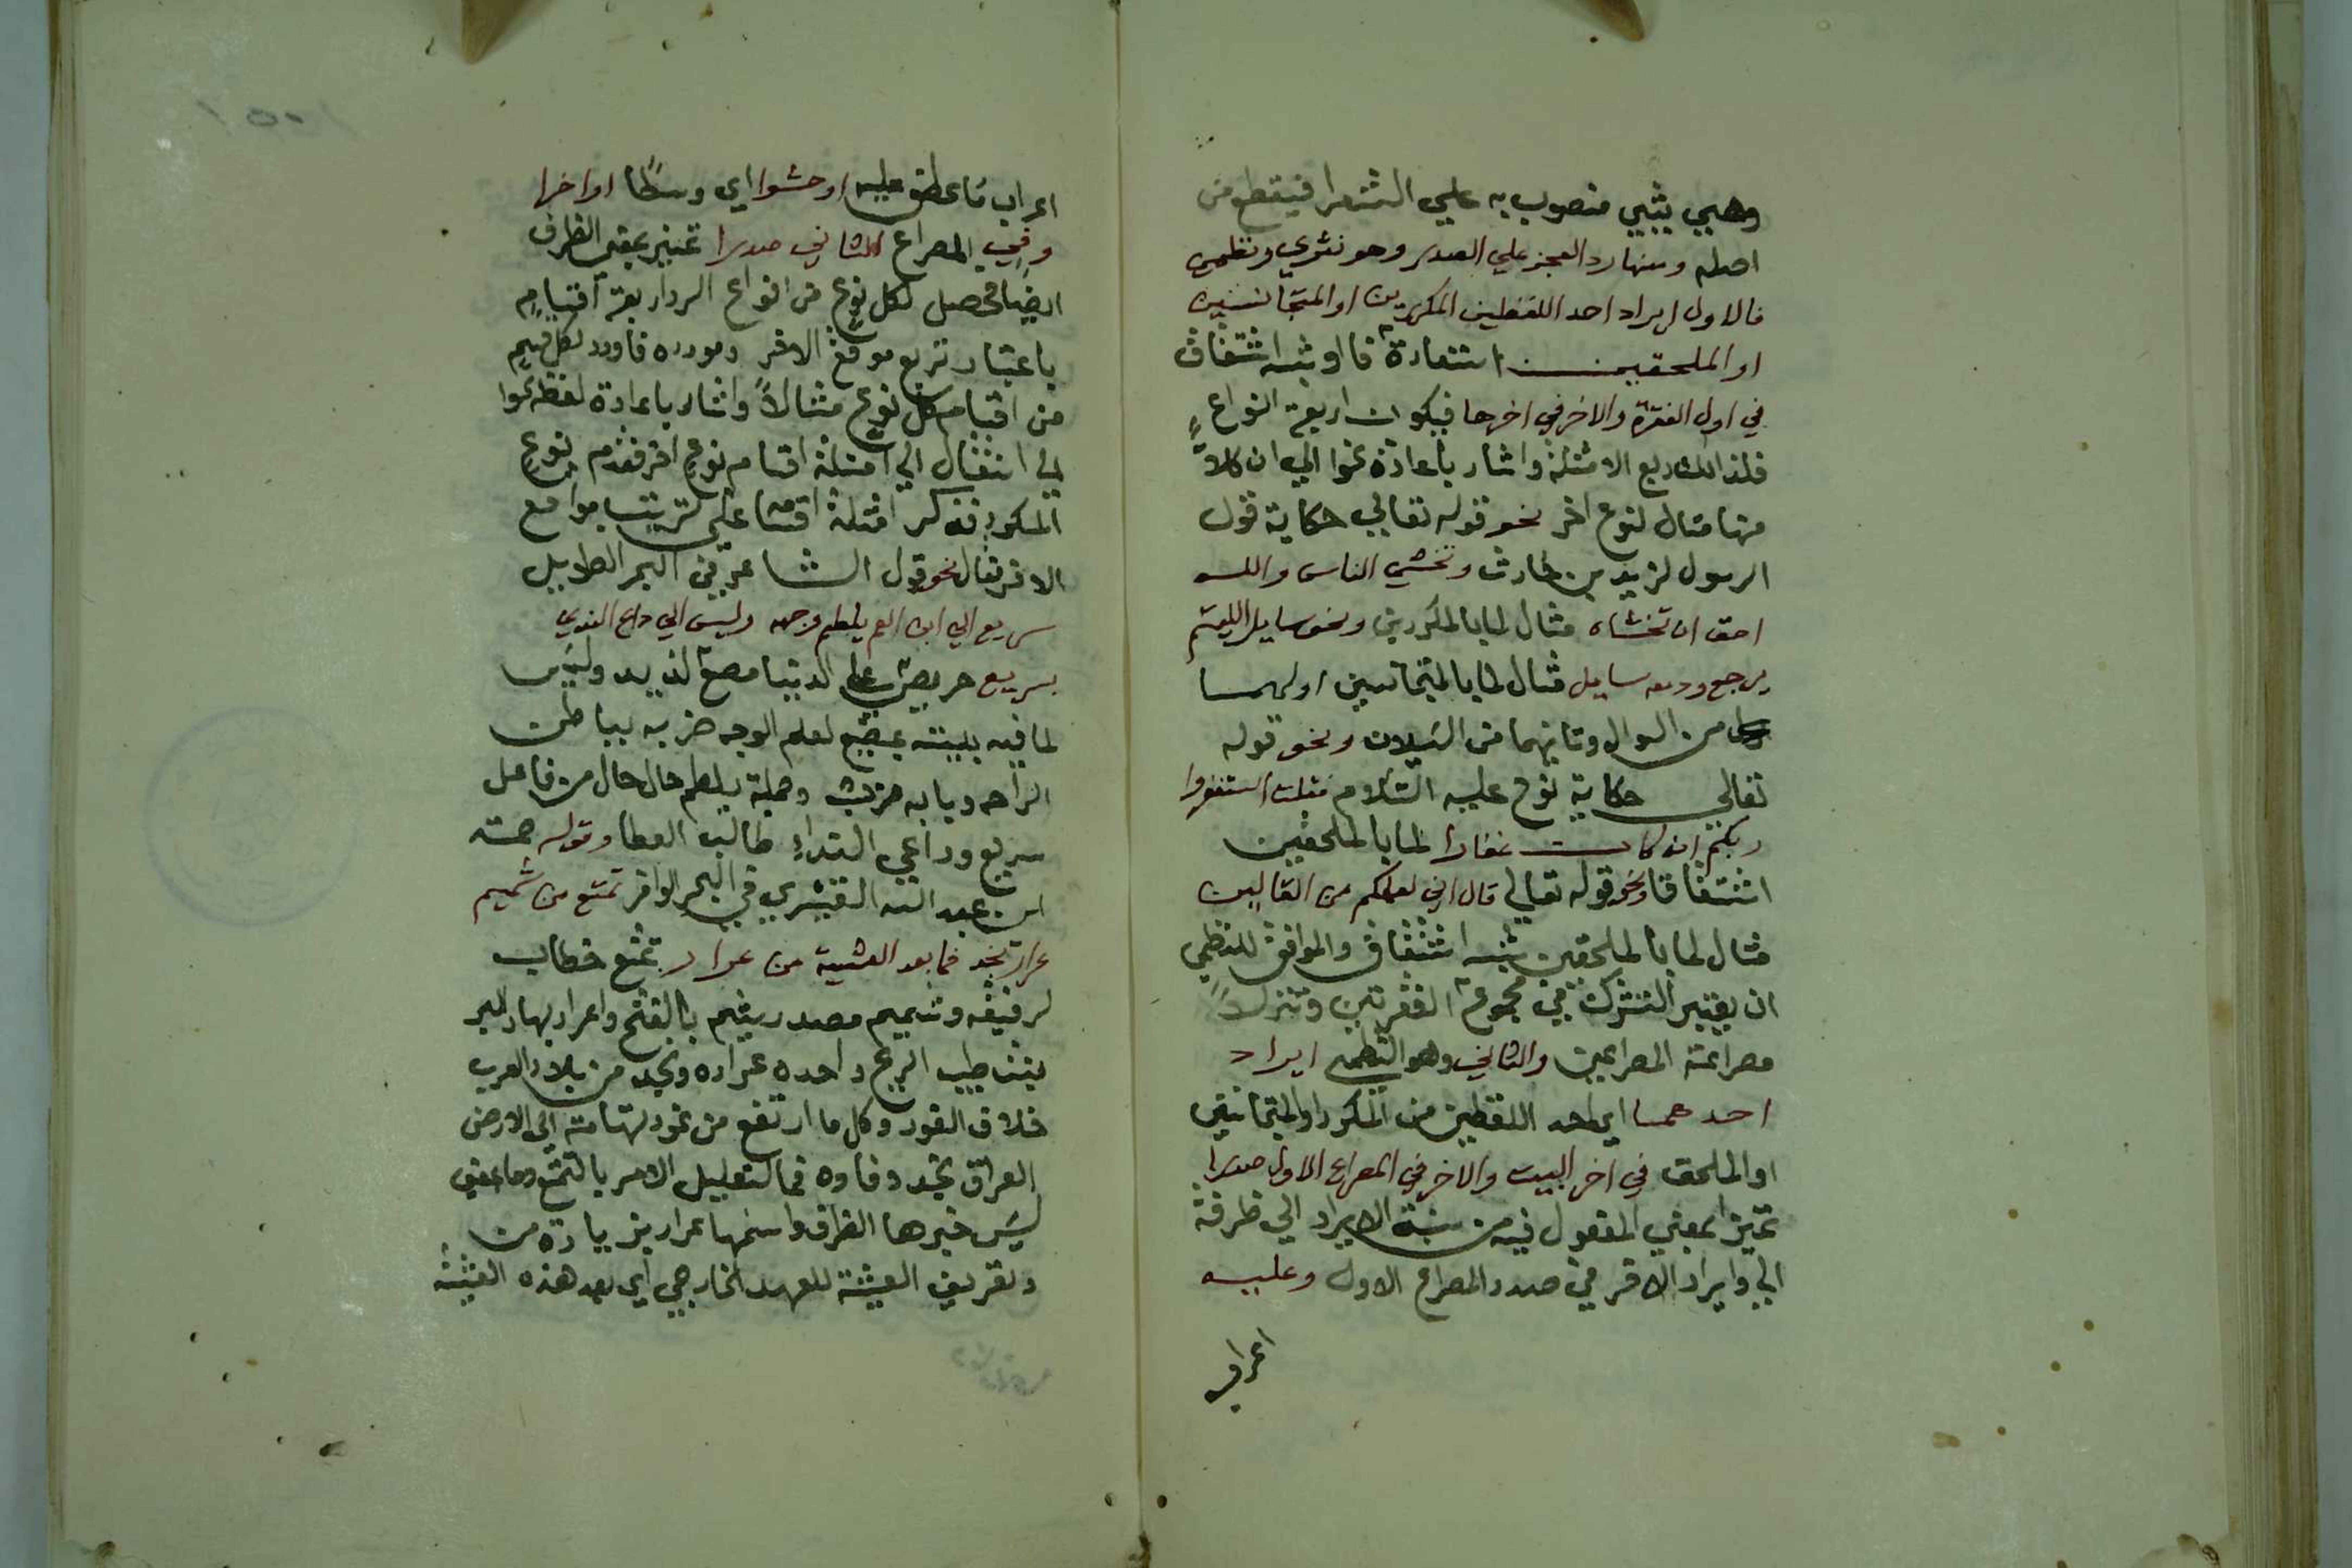 وهبي يثبي منصوب به علي الشهرا فيقطع من
اصله ومنها رد العجز علي الصدر وهو نثري ونظمي
فالاول ايراد احد اللفظين المكررين او المتجانسين
او الملحقين اشتقاقا او شبه اشتقاق
في اول الفقرة والاخر في اخرها فيكون اربعة انواع
فلذالك ربع الامثلة واشار باعادة نحوا الي ان كلا
منها مثال لنوع اخر نحو قوله تعالي حكاية قول
الرسول لزيد بن حارث وتخشي الناس والله
احق ان تخشاه مثال لما بالمكررين ونحو سايل اللييم
يرجع ودمعه سايل مثال لما بالمتجانسين اولهما
من السوال وثانيهما من السيلان ونحو قوله
تعالي حكاية نوح عليه السلام فقلت استغفروا
ربكم انه كان غفارا لما بالملحقين
اشتقاقا ونحو قوله تعالي قال اني لعملكم من القالين
مثال لما بالملحقين بشبه اشتقاق والموافق للنظمي
ان يعتبر اشترك في مجموع الفقرتين وتنزلا
مصراعة المصراعين والثاني وهو النظمي ايراد
احدهما اي احد اللفظين من المكرر او المتجانسين
او الملحق في اخر البيت والاخر في المصراع الاول صدرا
تميز بمعني المفعول فيه من نسبة الايراد الي ظرفه
اي وايراد الاخر في صدر المصراع الاول وعليه
اعراب
اعراب ما عطف عليه او حشوا اي وسطا او اخرا
وفي المصراع الثاني صدرا تمييز بمعني الظرف
ايضا فحصل لكل نوع من انواع الرد اربعة اقسام
باعتبار تربع موقع الاخر ومورده فاورد لكل قسم
من اقسام كل نوع مثالا واشار باعادة لفظ نحوا
لي انتقال الي امثلة اقسام نوع اخر فقدم نوع
المكرر فذكر امثلة اقسامه علي ترتيب مواقع
الاخر فقال نحو قول الشاعر في البحر الطويل
سريع الي ابن العم يلطم وجهه وليس الي داعي الندي
بسريع حريص علي الدنيا مضيع لدينه وليس
لما في بيته بمضيع لطم الوجه ضربه بباطن
الراحه وبابه ضرب وجملة يلطم حال حال من فاعل
سريع وداعي الندا طالب العطا وقوله صمته
ابن عبد الله القشيري في البحر الوافر تمتع من شميم
عرار نجد فما بعد العشية من عرار تمتع خطاب
لرفيقه وشميم مصدر يشم بالفتح وعرار بهار البر
نبت طيب الريح واحده عراره ونجد من بلاد العرب
خلاف الغور وكل ما ارتفع من غور تهامة الي الارض
العراق نجد وفاوه فما لتعليل الامر بالتمتع وما بمعني
ليس خبرها الظرف واسمها عرار بزيادة من
وتعريف العشية للعهد الخارجي اي بعد هذه العشية